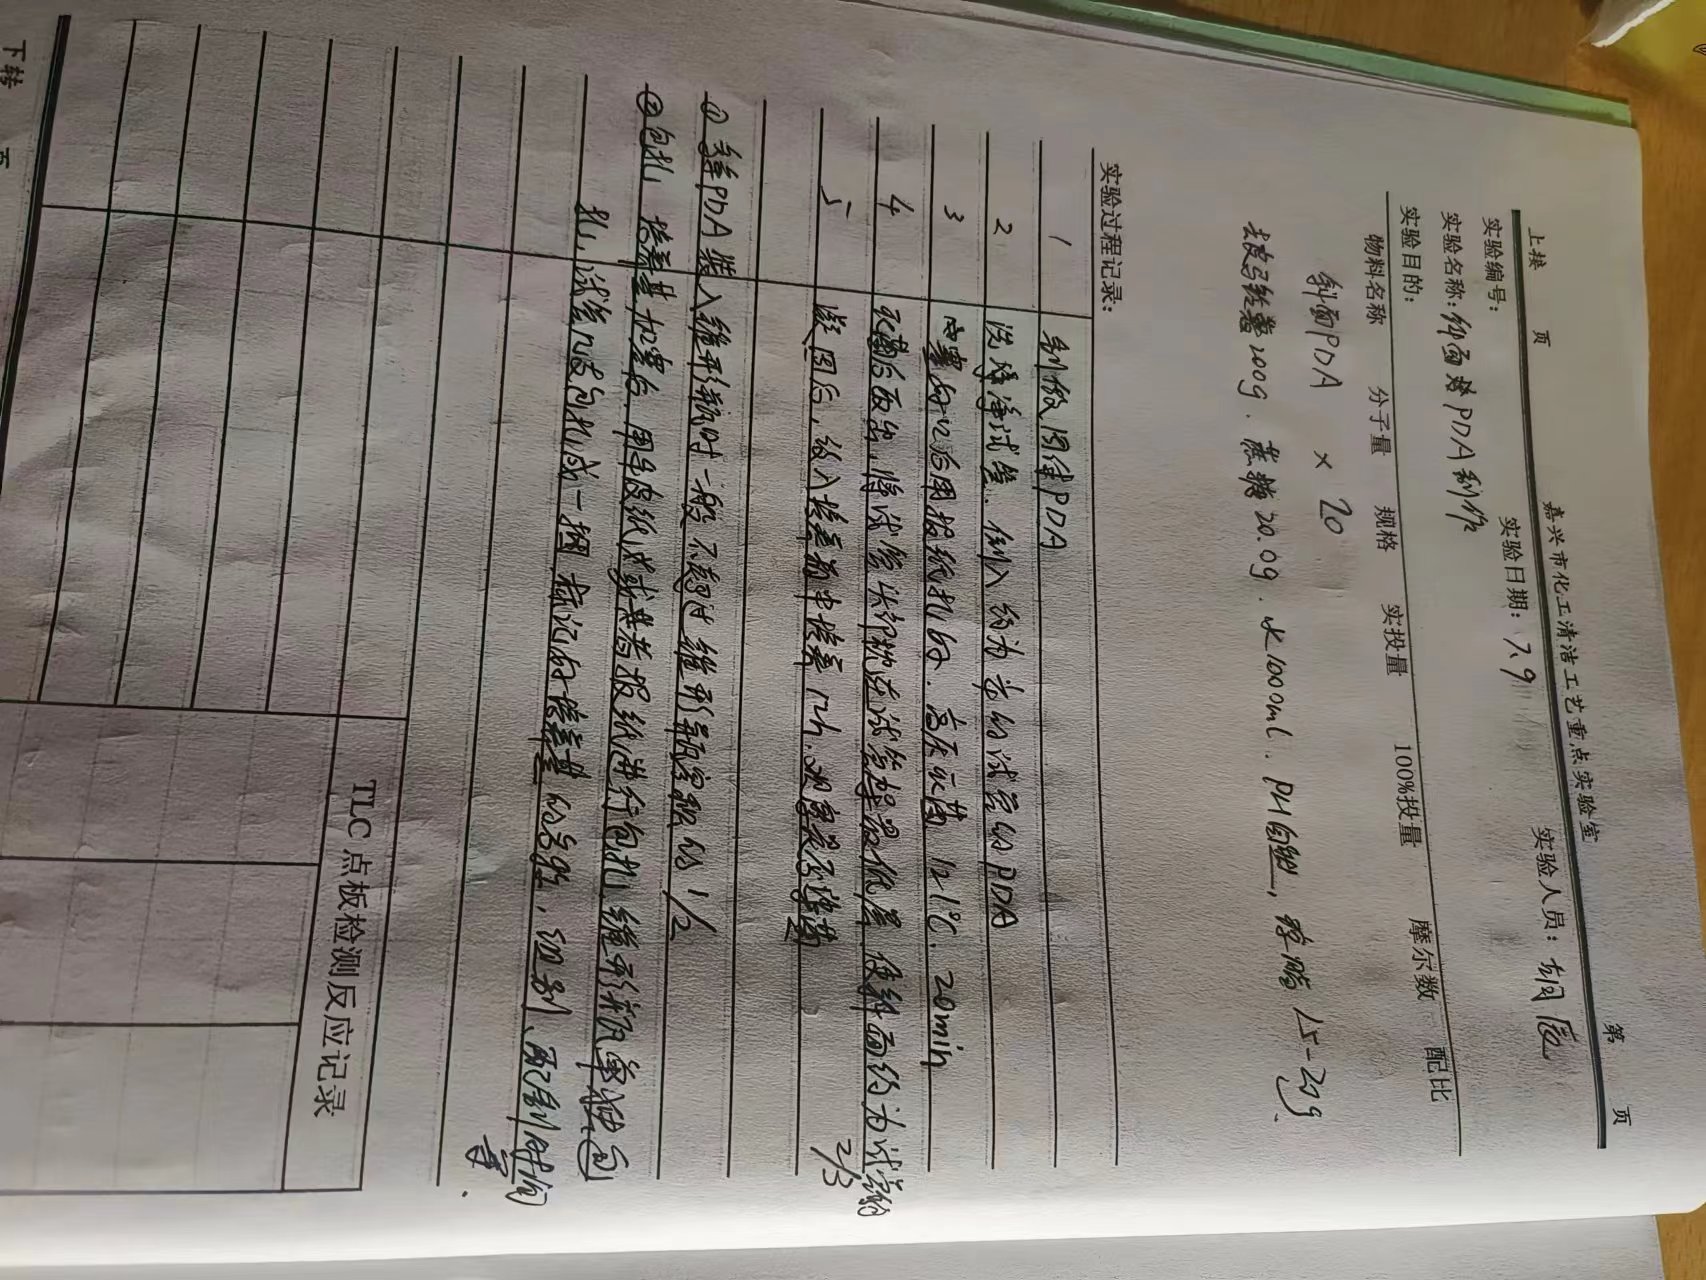 上接 页 第 页
嘉兴市化工清洁工艺重点实验室
实验编号: 实验日期: 7.9 实验人员:
实验名称: 斜面 PDA制作
实验目的:
物料名称 分子量 规格 实投量 100%投量 摩尔数 配比
斜面PDA × 20
去皮马铃薯200g. 蔗糖20.0g. 水1000ml. PH自然, 琼脂15-20g.
实验过程记录:
1 制做固体PDA
2 洗净试管. 倒入约为 的试管的PDA
3 用报纸扎好. 高压灭菌 121℃. 20min
4 灭菌后取出, 将试管头部 在试管架 位置, 使斜面约为试管的2/3
5 凝固后, 放入培养箱中培养12h. 观察是否染菌
① PDA装入锥形瓶时一般不超过锥形瓶容积的1/2
②包扎: 培养基加塞后, 用牛皮纸或者报纸进行包扎, 锥形瓶单独包
扎, 试管几支包扎成一捆, 标记好培养基的名称, 组别、配制时间
等.
TLC点板检测反应记录
下转 页